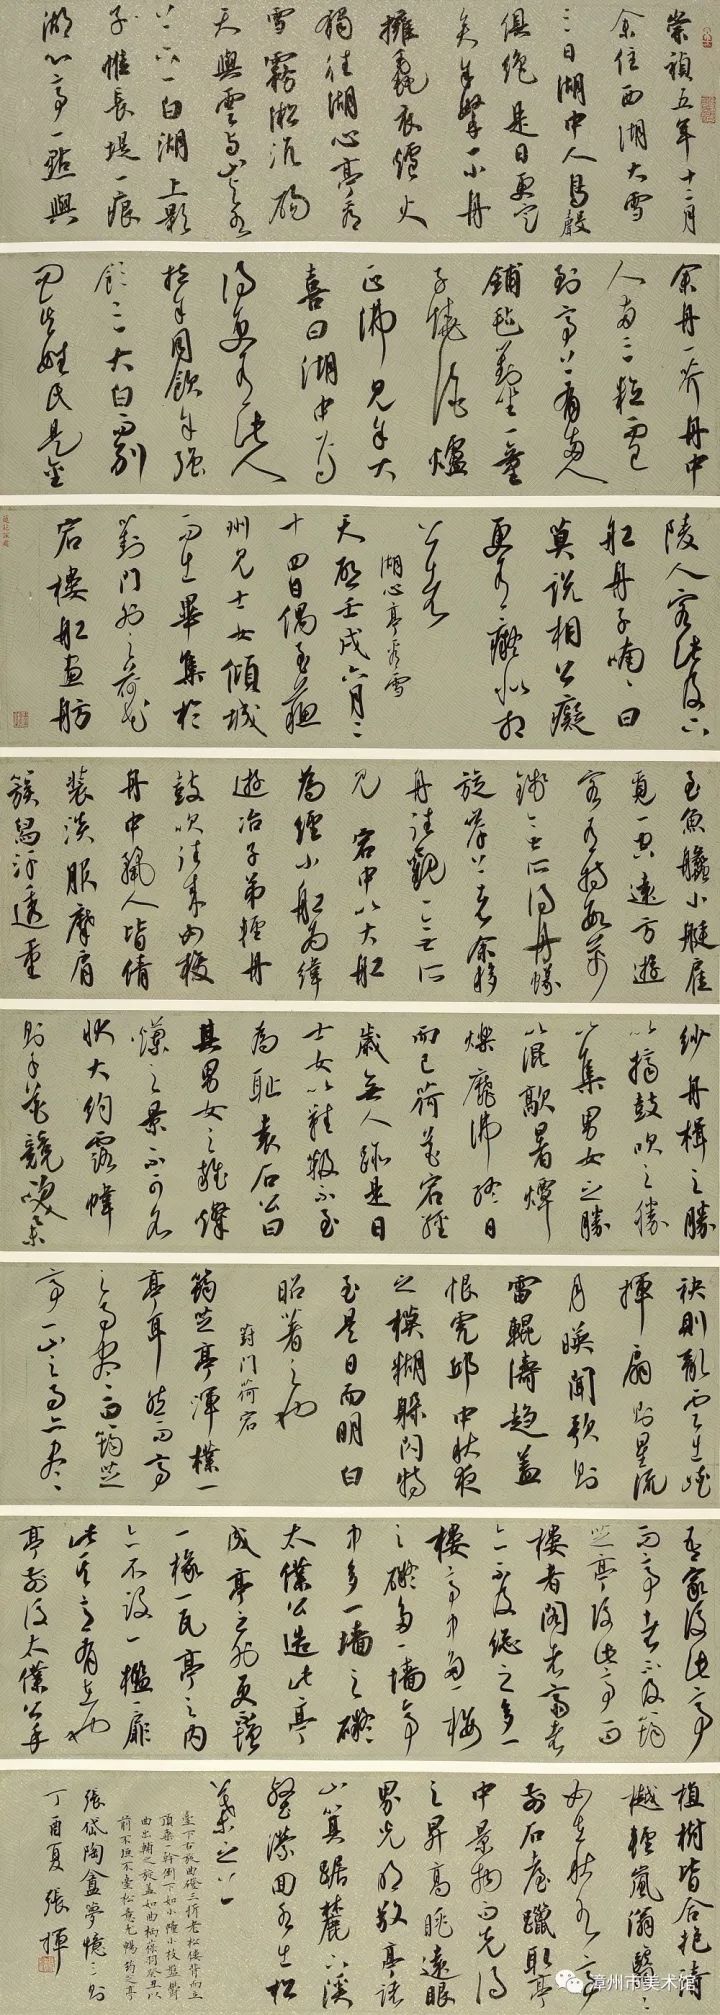 崇禎五年十二月
余住西湖大雪
三日湖中人鳥聲
俱絕是日更定
矣余拏一小舟
擁毳衣爐火
獨往湖心亭看
雪霧淞沆碭
天與雲與山與水
上下一白湖上影
子惟長堤一痕
湖心亭一點與
余舟一芥舟中
人兩三粒而已
到亭上有兩人
鋪氈對坐一童
子燒酒爐
正沸見余大
喜曰湖中焉
得更有此人
拉余同飲余強
飲三大白而別
問其姓氏是金
陵人客此及下
船舟子喃喃曰
莫說相公癡
更有癡似相
公者
湖心亭看雪
天啟壬戌六月二
十四日偶至蘇
州見士女傾城
而出畢集於
葑門外之荷花
宕樓船畫舫
至魚艖小艇雇
覓一空遠方遊
客有持數萬
錢無所得舟蟻
旋岸上者余移
舟往觀一無所
見宕中以大船
為經小船為緯
遊冶子弟輕舟
鼓吹往來如梭
舟中麗人皆倩
裝淡服摩肩
簇舄汗透重
紗舟楫之勝
以擠鼓吹之勝
以集男女之勝
以混歊暑燂
爍靡沸終日
而已荷花宕經
歲無人跡是日
士女以鞋靸不至
為恥袁石公曰
其男女之雜燦
爛之景不可名
狀大約露幃
則千花競笑舉
袂則亂雲出峽
揮扇則星流
月映聞歌則
雷輥濤趨蓋
恨虎邱中秋夜
之模糊躲閃特
至是日而明白
昭著之也
葑門荷宕
筠芝亭渾樸一
亭耳然而亭
之事盡而筠芝
亭一山之事亦盡
吾家後此亭
而亭者不及筠
芝亭後此亭而
樓者閣者齋者
亦不及總之多一
樓亭中多一樓
之礙多一墻亭
中多一墻之礙
太僕公造此亭
成亭之外更不增
一椽一瓦亭之內
亦不設一檻一扉
此其意有在也
亭前後太僕公手
植樹皆合抱清
樾輕嵐滃滃翳翳
如在秋水亭
前石臺躐取亭
中景物而先得
之昇高眺遠眼
界光明敬亭諸
山箕踞麓下溪
壑瀠回水出松
葉之上
臺下右旋曲磴三折老松僂背而立
頂垂一幹倒下如小幢小枝盤鬱
曲出輔之旋蓋如曲柄葆羽癸丑以
前不垣不臺松意尤暢 筠芝亭
張岱陶盦夢憶三則
丁酉夏 張揮
漳州市美术馆